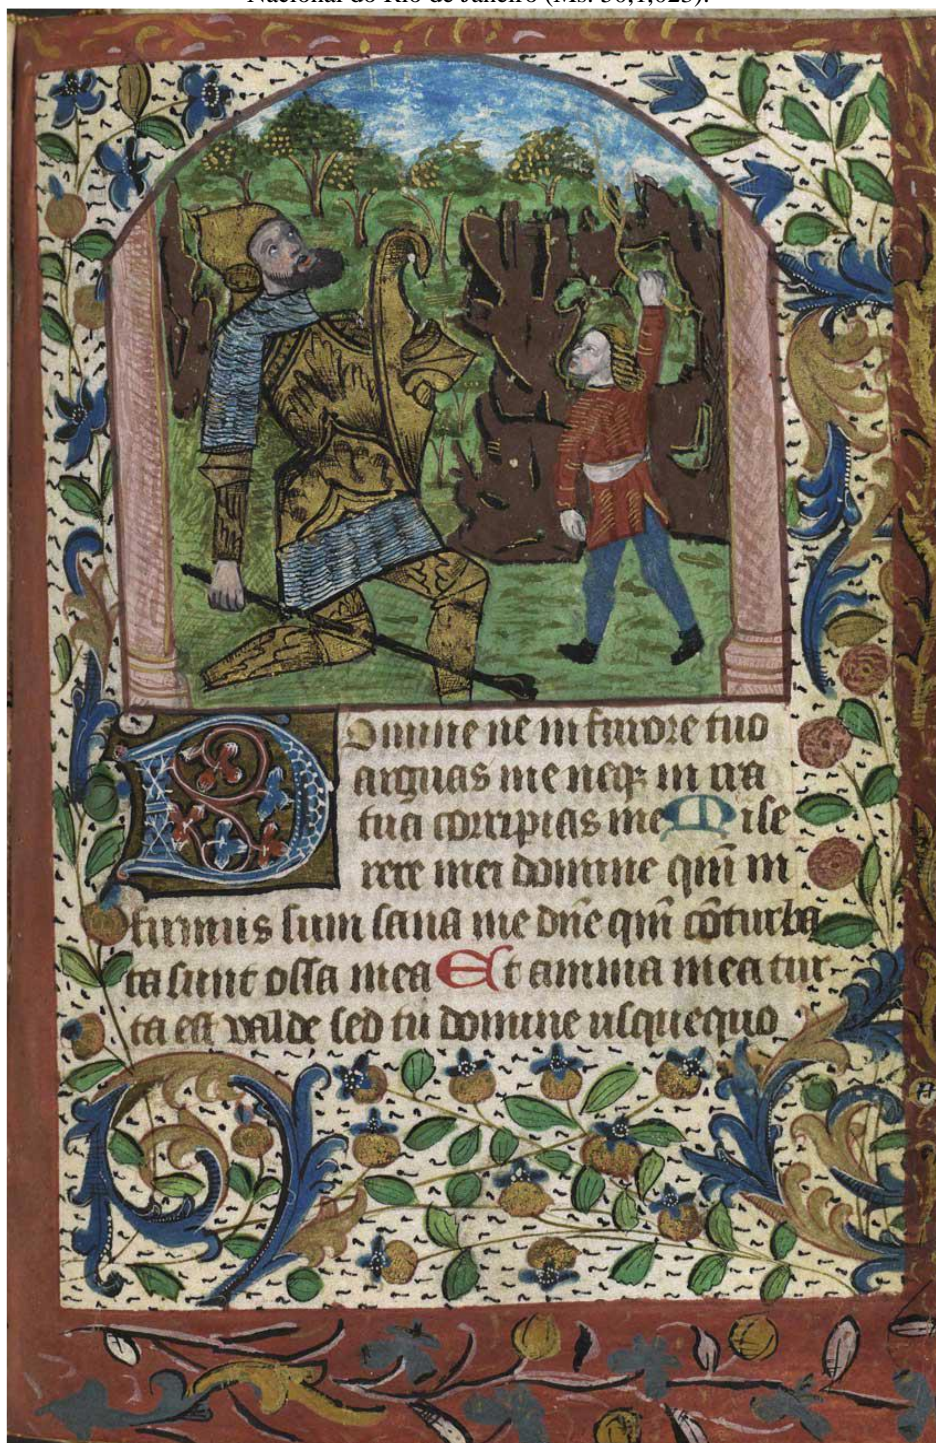 Nacional do Rio de Janeiro (Ms. 50,1,023).
Domine ne in furore tuo
arguas me neqꝫ in ira
tua corripias me Mise
rere mei domine qm̄ in
firmus sum sana me dn̄e qm̄ cōturba
ta sunt ossa mea Et anima mea tur
ta est valde sed tu domine usquequo